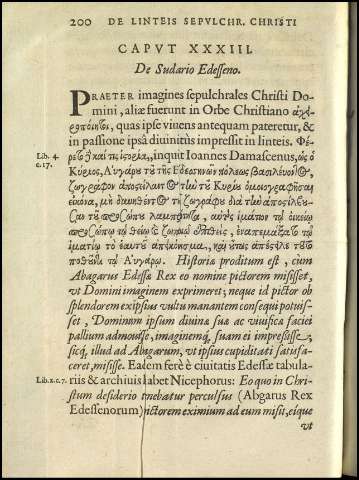 200 DE LINTEIS SEPVLCHR. CHRISTI
CAPVT XXXIII.
De Sudario Edesseno.
PRAETER imagines sepulchrales Christi Do-
mini, aliæ fuerunt in Orbe Christiano ἀχει-
ροποίητοι, quas ipse viuens antequam pateretur, &
in passione ipsa diuinitùs impressit in linteis. Φέ-
Lib. 4. c. 17.
ρεται καὶ τις ἱστορία, inquit Ioannes Damascenus, ὡς ὁ
Κύριος, Αὐγάρου τῆς Ἐδεσηνῶν πόλεως βασιλεύοντος,
ζωγράφον ἀποστείλαντος τὴν τοῦ Κυρίου ὁμοιογραφῆσαι
εἰκόνα, μὴ δυνηθέντος τοῦ ζωγράφου διὰ τὴν ἀποστίλβου-
σαν τοῦ προσώπου λαμπρότητα, αὐτὸς ἱμάτιον τῷ οἰκείῳ
προσώπῳ τῷ θείῳ καὶ ζωοποιῷ ἐπιθεὶς, ἐναπεμάξατο τῷ
ἱματίῳ τὸ ἑαυτοῦ ἀπεικόνισμα, καὶ οὕτως ἀπέστειλε τοῦτο
ποθοῦντι τῷ Αὐγάρῳ. Historia proditum est, cùm
Abagarus Edessæ Rex eo nomine pictorem misisset,
vt Domini imaginem exprimeret; neque id pictor ob
splendorem ex ipsius vultu manantem consequi potuis-
set, Dominum ipsum diuinæ suæ ac viuificæ faciei
pallium admouisse, imaginemq, suam ei impressisse,
sicq, illud ad Abagarum, vt ipsius cupiditati satisfa-
ceret, misisse. Eadem ferè è ciuitatis Edessæ tabula-
Lib. 2. c. 7.
riis & archiuis habet Nicephorus: Eo quo in Chri-
stum desiderio tenebatur perculsus (Abgarus Rex
Edessenorum) pictorem eximium ad eum misit, eique
vt